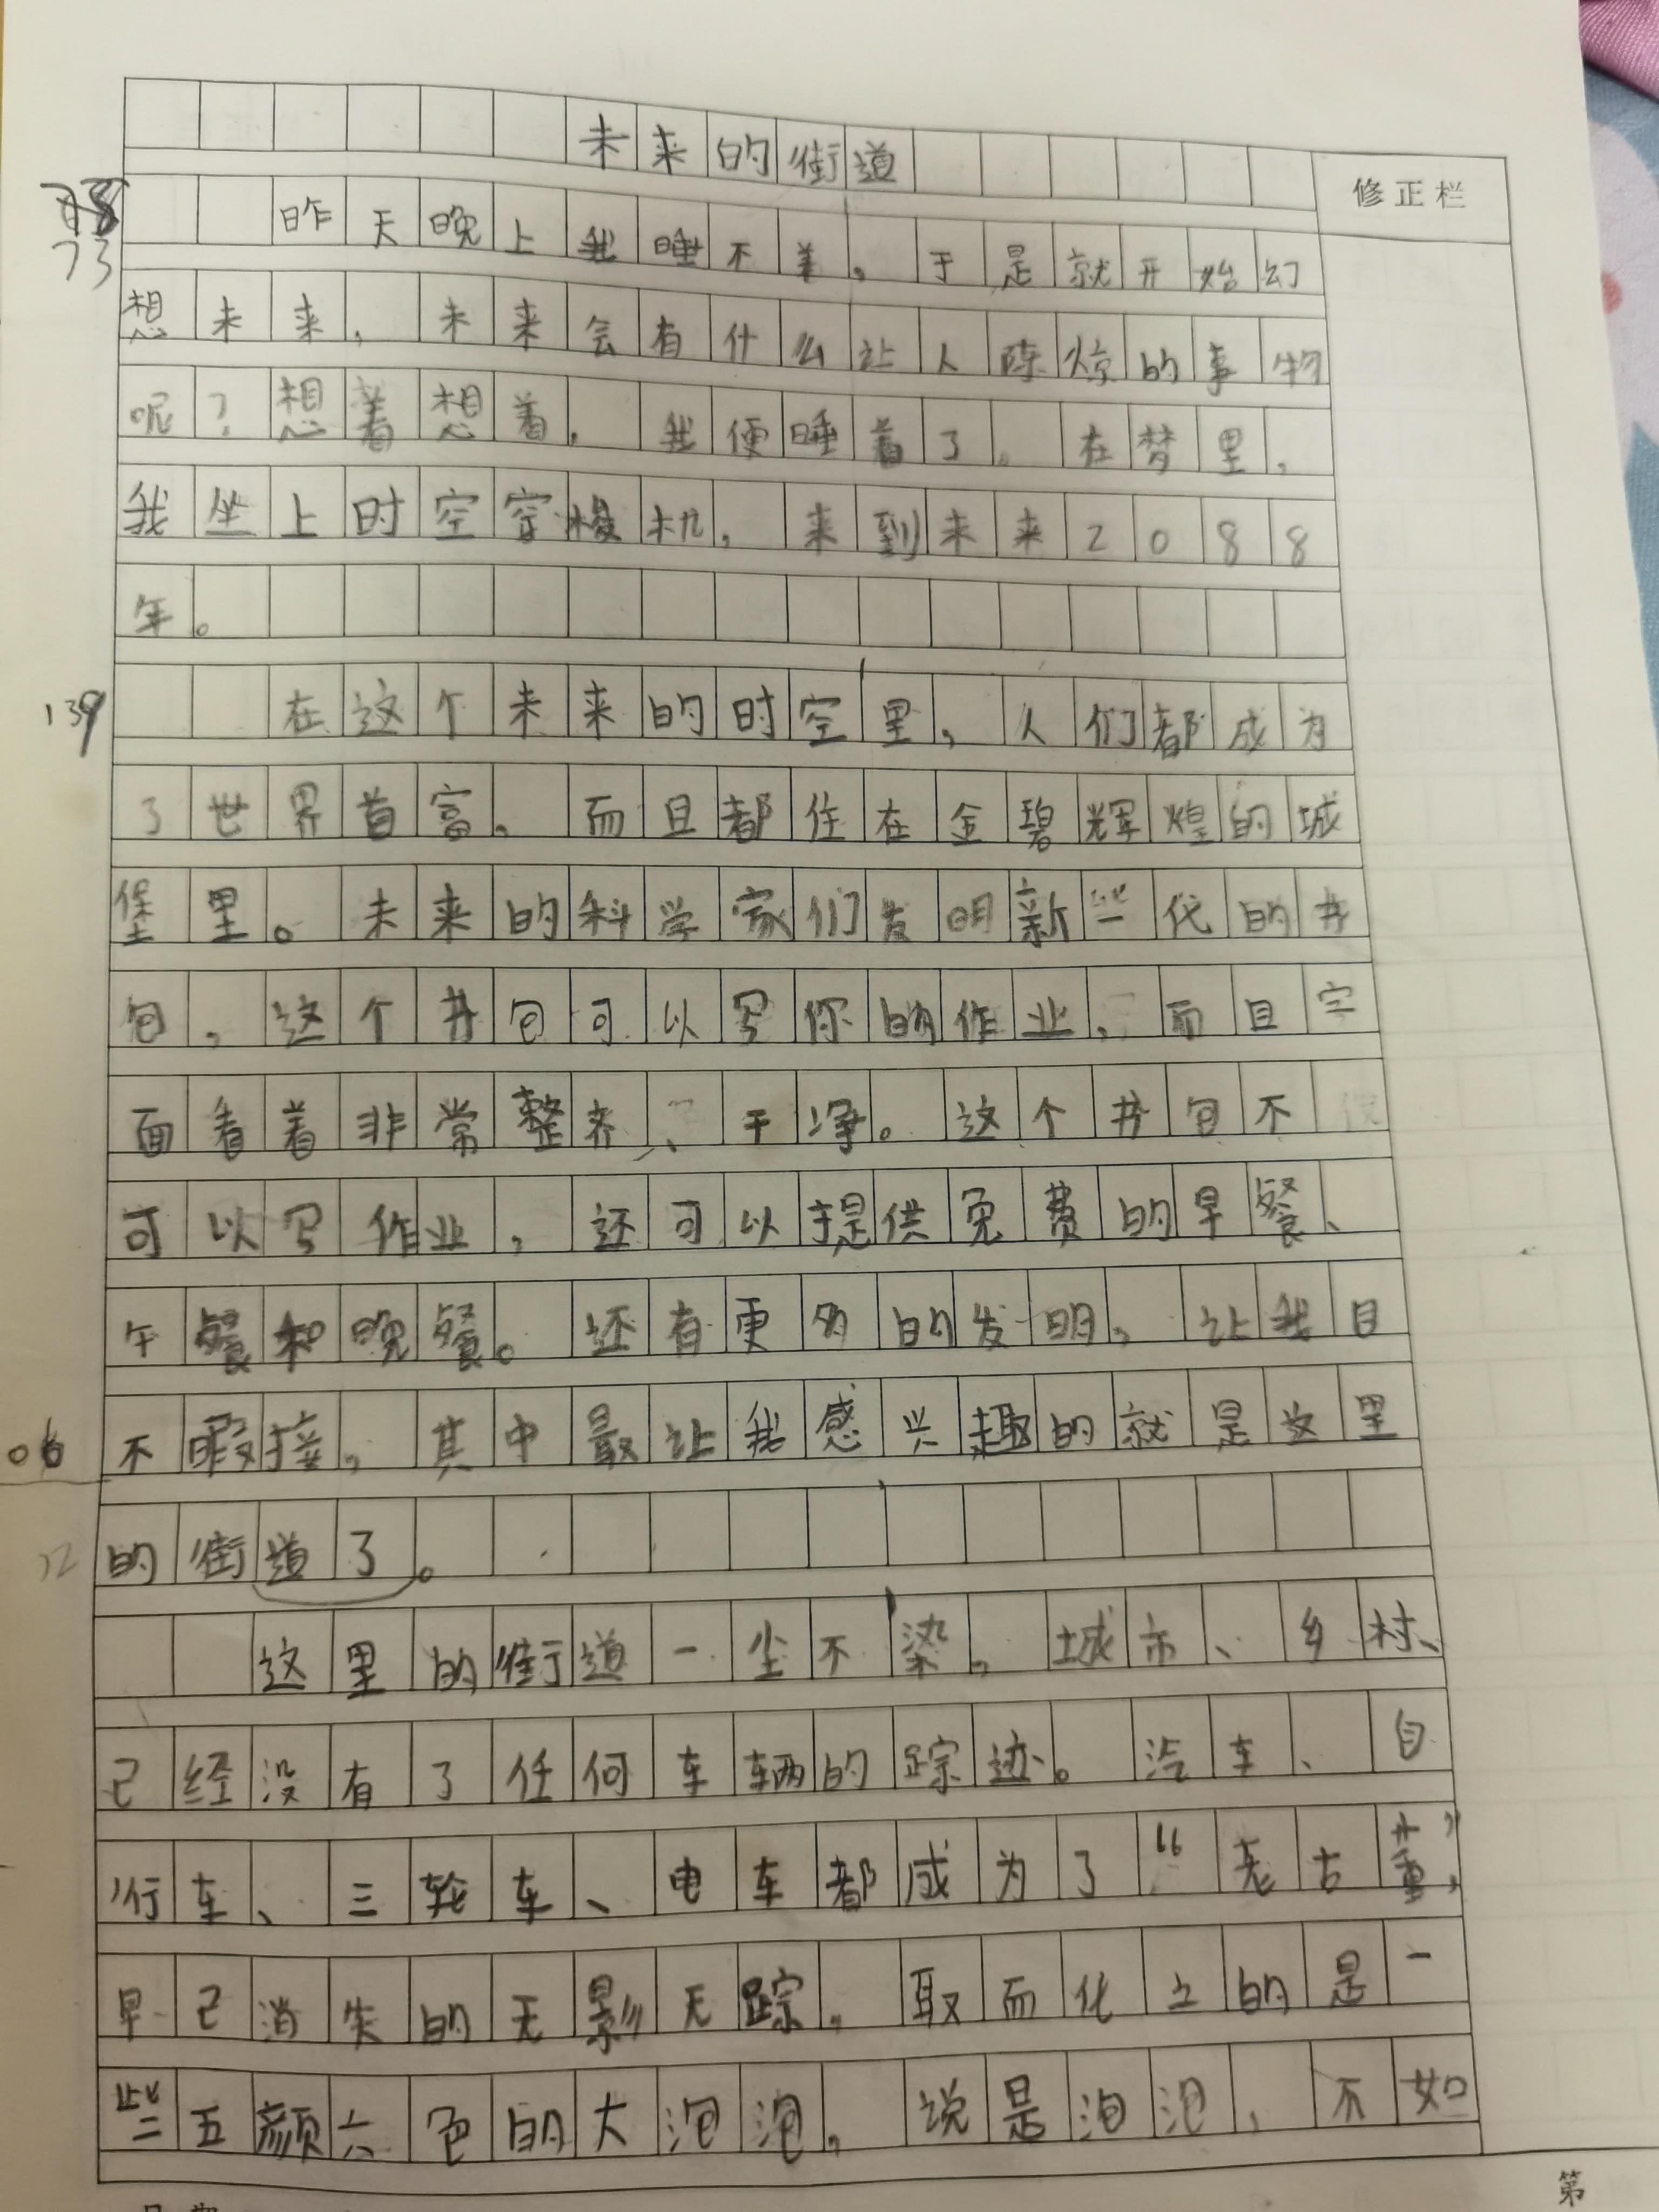 未来的街道
修正栏
78
73
昨天晚上我睡不着，于是就开始幻
想未来，未来会有什么让人陈惊的事物
呢？想着想着，我便睡着了。在梦里，
我坐上时空穿梭机，来到未来2088
年。
139
在这个未来的时空里，人们都成为
了世界首富。而且都住在金碧辉煌的城
堡里。未来的科学家们发明新些代的书
包，这个书包可以写你的作业，而且字
面看着非常整齐、干净。这个书包不仅
可以写作业，还可以提供免费的早餐、
午餐和晚餐。还有更多的发明，让我目
06
不暇接，其中最让我感兴趣的就是这里
12
的街道了。
这里的街道一尘不染，城市、乡村、
已经没有了任何车辆的踪迹。汽车、自
行车、三轮车、电车都成为了“老古董”，
早已消失的无影无踪，取而代之的是一
些五颜六色的大泡泡，说是泡泡，不如
第